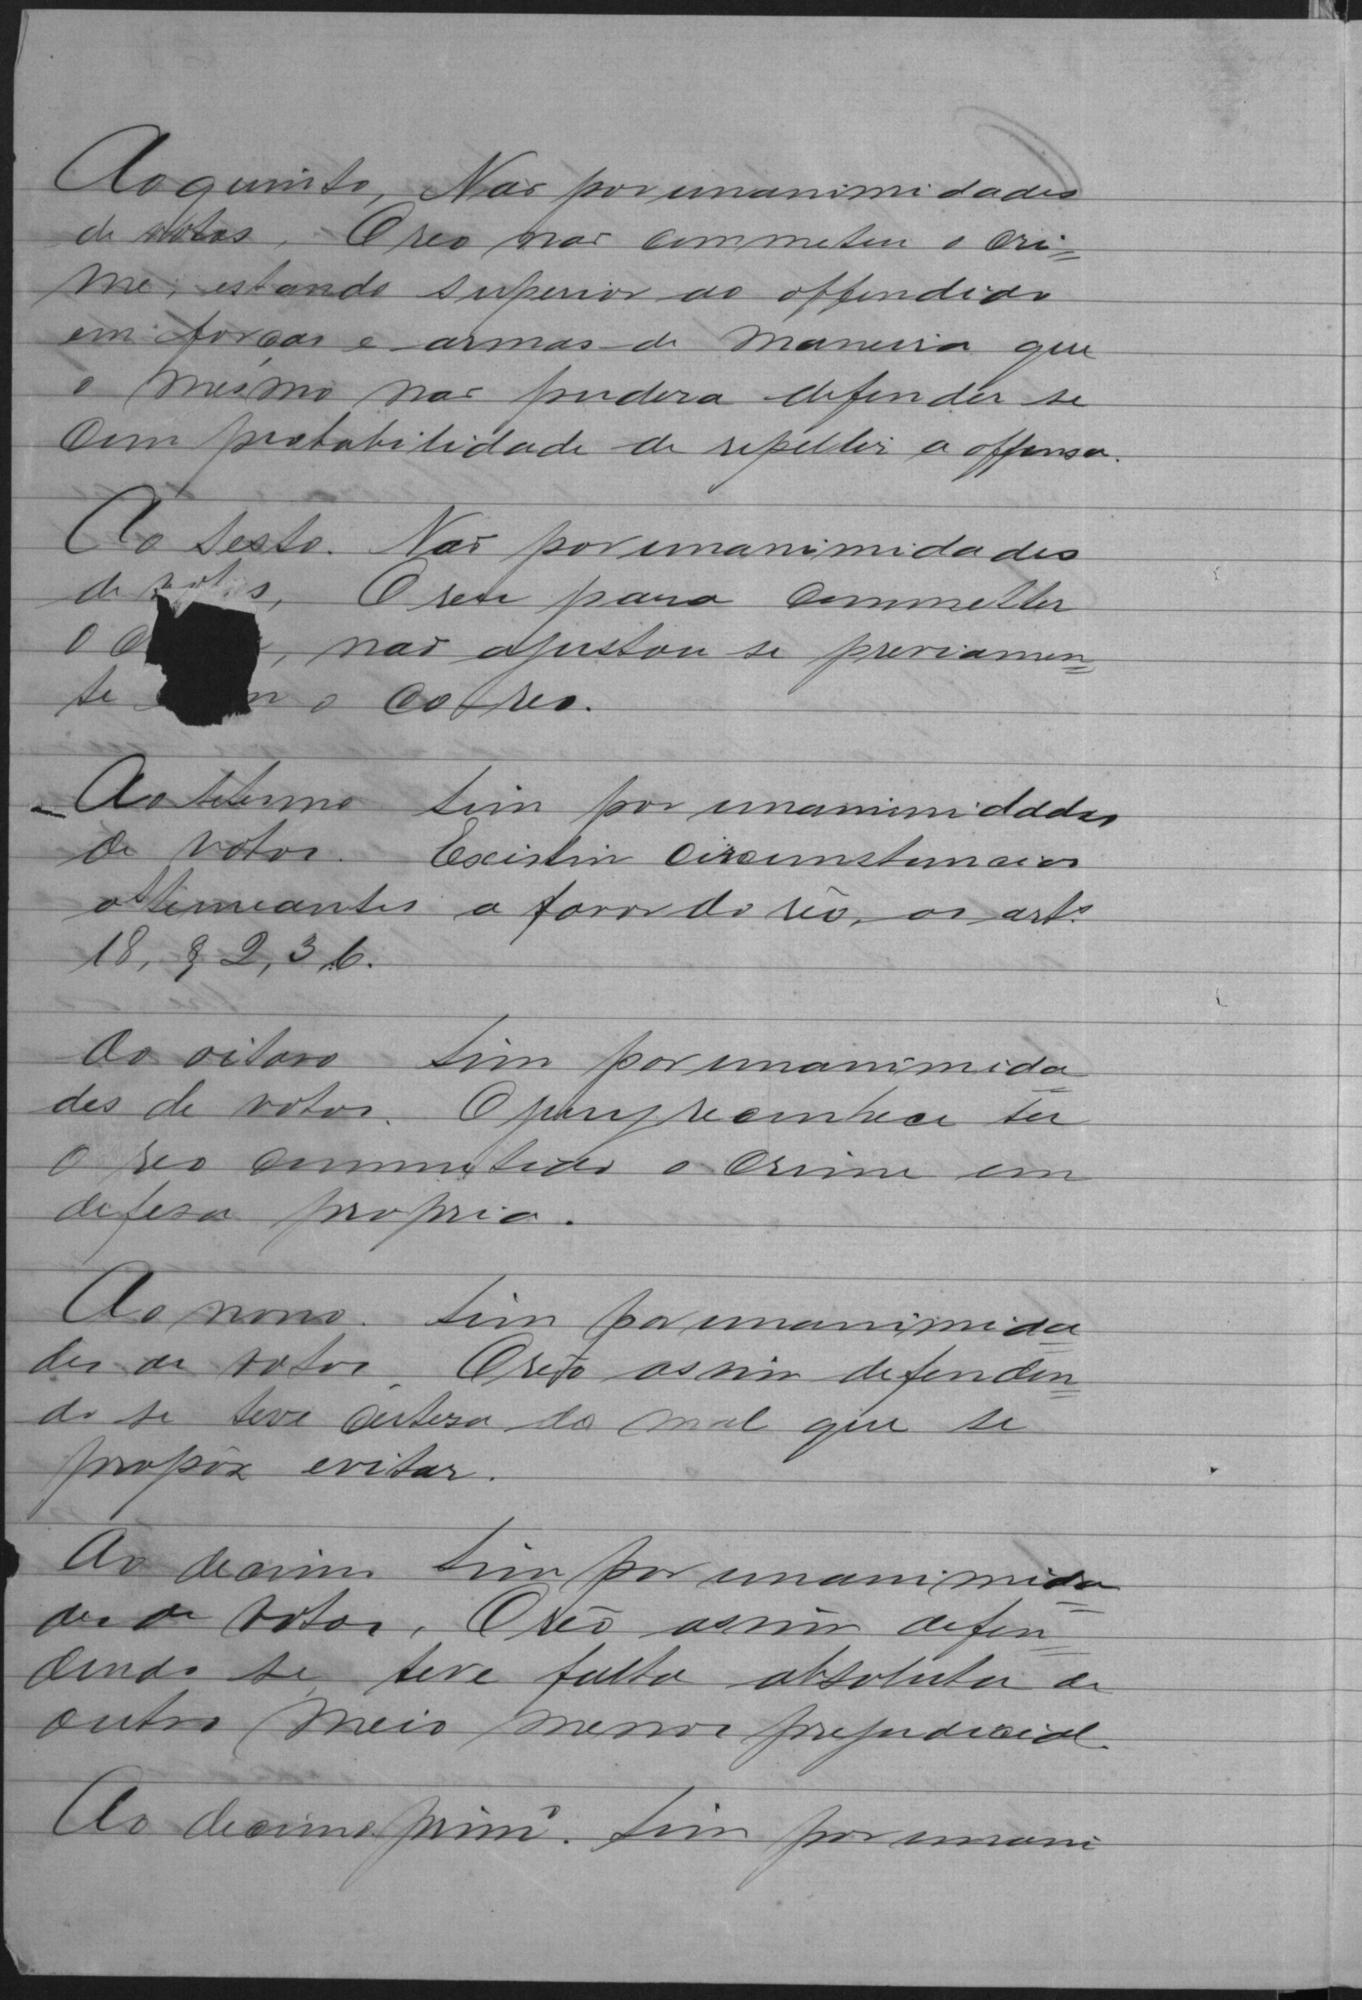 Ao quinto, Não por unanimidades
de votos. O reo não commeteu o cri=
me, estando superior ao offendido
em forças e armas de maneira que
o mesmo não pudera defender se
com probabilidade de repellir a offensa.
Ao sesto. Não por unanimidades
de votos, O reu para commetter
O c, não ajustou se previamen=
te o co-reo.
Ao setimo sim por unanimidades
de votos. Existin circunstancias
attenuantes a favor do réo, os arts
18, § 2, 3 6.
Ao oitavo sim por unanimida=
des de votos. O jury reconhece ter
o reo commetido o crime em
defesa propria.
Ao nono. sim por unanimida=
des de votos. O réo assim defenden=
do se teve certesa do mal que se
propôz evitar.
Ao decimo sim por unanimida=
des de votos, O réo assim defen=
dendo se, teve falta absoluta de
outro meio menos prejudicial.
Ao decimo primo. sim por unani